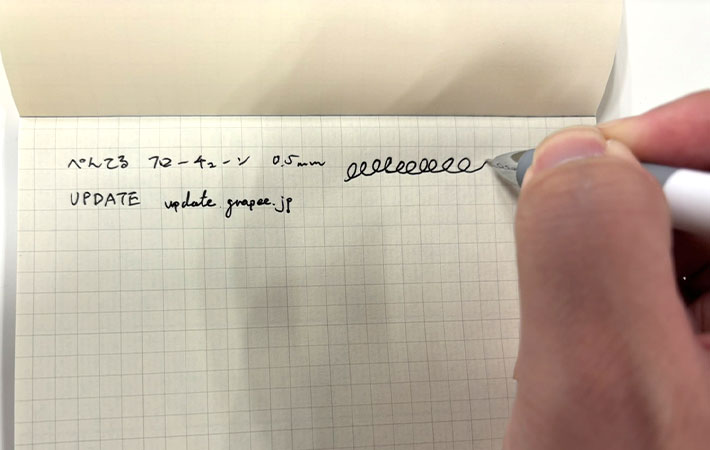 ぺんてる フローチューン 0.5mm
UPDATE update.grapee.jp